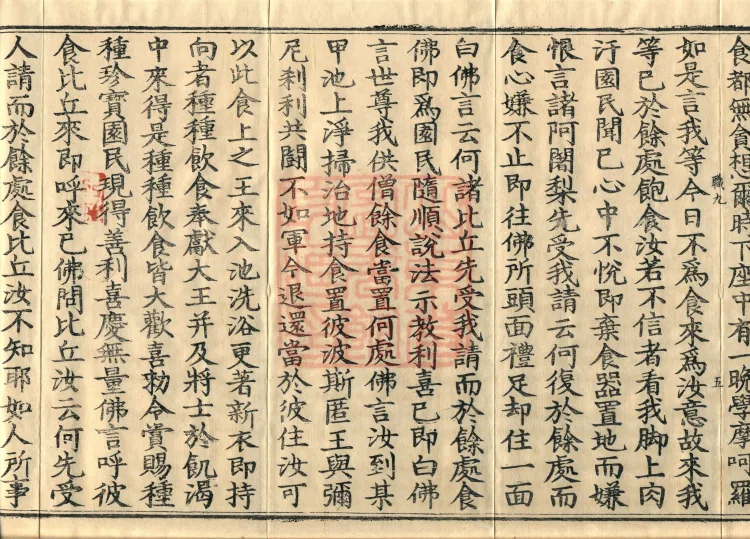 食都無貪想爾時下座中有一晚學摩呵羅
職九 五
如是言我等今日不爲食來爲汝意故來我
等已於餘處飽食汝若不信者看我脚上肉
汙國民聞已心中不悅即棄食器置地而嫌
恨言諸阿闍梨先受我請云何復於餘處而
食心嫌不止即往佛所頭面禮足却住一面
白佛言云何諸比丘先受我請而於餘處食
佛即爲國民隨順說法示教利喜已即白佛
言世尊我供僧餘食當置何處佛言汝到某
甲池上淨掃治地持食置彼波斯匿王與彌
尼利利共鬪不如軍今退還當於彼住汝可
以此食上之王來入池洗浴更著新衣即持
向者種種飲食奉獻大王并及將士於飢渴
中來得是種種飲食皆大歡喜勑令賞賜種
種珍寶國民現得善利喜慶無量佛言呼彼
食比丘來即呼來已佛問比丘汝云何先受
人請而於餘處食比丘汝不知耶如人所事